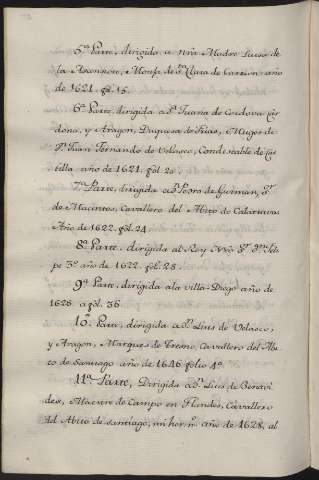 5ª Parte, dirigida a nrâ Madre Luisa de
la Ascension, Monja de Sta Clara de Carrion año
de 1621. fol. 15.
6ª Parte dirigida a Dª Juana de Cordova Car
dona, y Aragon, Duquesa de Frias, Muger de
Dn Juan Fernando de Velasco, Condestable de Cas
tilla año de 1621. fol. 20.
7ª Parte, dirigida a D Pedro de Guzman, Sr
de Macintos, Cavallero del Abito de Calatrava
Año de 1622. fol. 24.
8ª Parte. dirigida al Rey Nrô Sr Dn Feli
pe 3º año de 1622. fol. 28.
9ª Parte, dirigida a la villa Diego año de
1628. a fol. 36
10ª Parte, dirigida a Dn Luis de Velasco,
y Aragon, Marques de Fresno, Cavallero del Abi
to de Santiago año de 1646 folio 40
11ª Parte, Dirigida a Dn Luis de
Maestre de Campo en Flandes, Cavallero
del Abito de Santiago, mi herno año de 1628, al